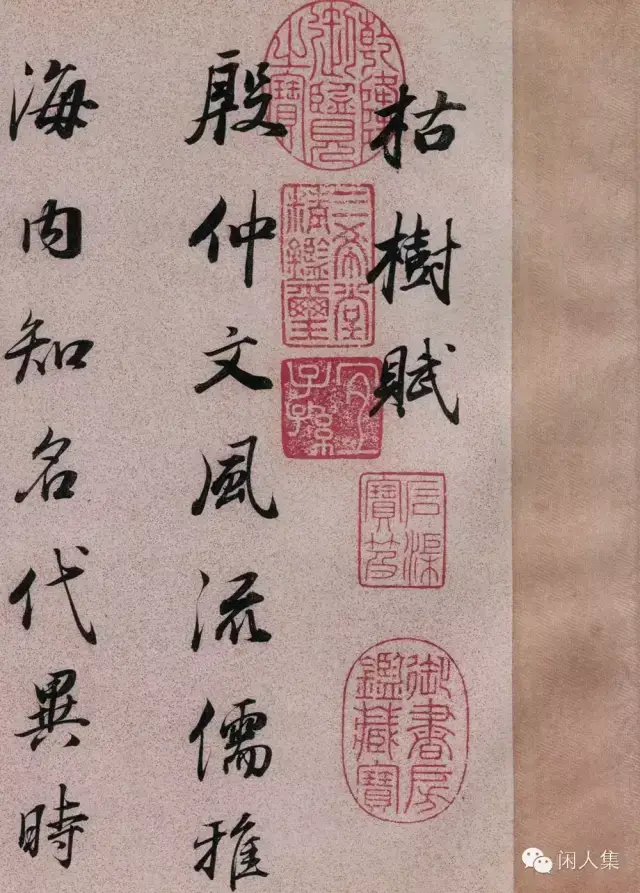 枯樹賦
殷仲文風流儒雅
海内知名代異時
乾隆御覽之寶
三希堂精鑑璽
宜子孫
石渠寶笈
御書房鑑藏寶
闲人集